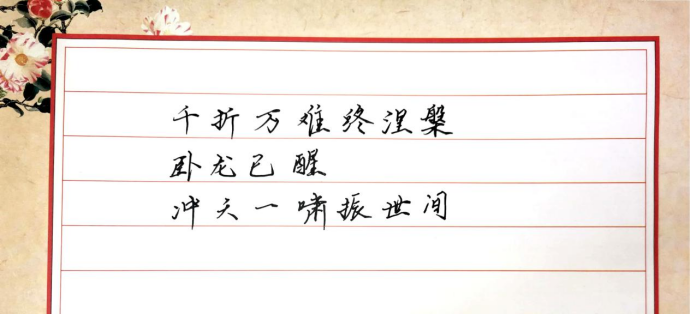 千折万难终涅槃
卧龙已醒
冲天一啸振世间